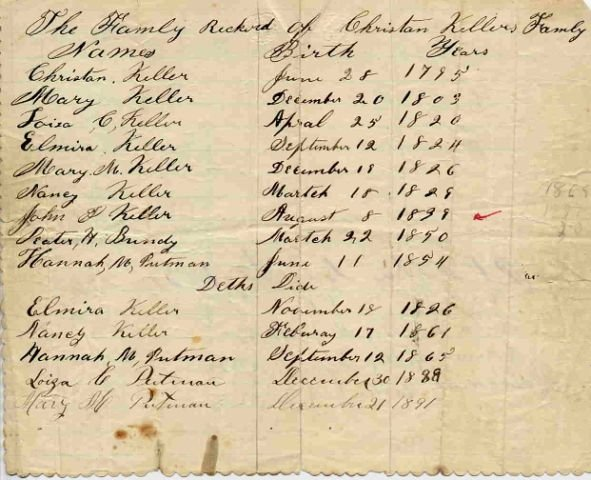 The Famly Reckord of Christan Kellers Famly
Names Birth Years
Christan. Keller June 28 1795
Mary Keller December 20 1803
Loiza, C, Keller Apral 25 1820
Elmira. Keller September 12 1824
Mary. M. Keller December 18 1826
Nancy Keller Martch 18. 1828
John P Keller August 8 1829
Peater, H, Bundy Martch 22 1850
Hannah, M, Putman June 11 1854
Deths Dide
Elmira Keller November 18 1826
Nancy Keller Feburay 17 1861
Hannah, M, Putman September 12 1865
Loiza C Putman December 30 1888
Mary M Putman December 21 1891